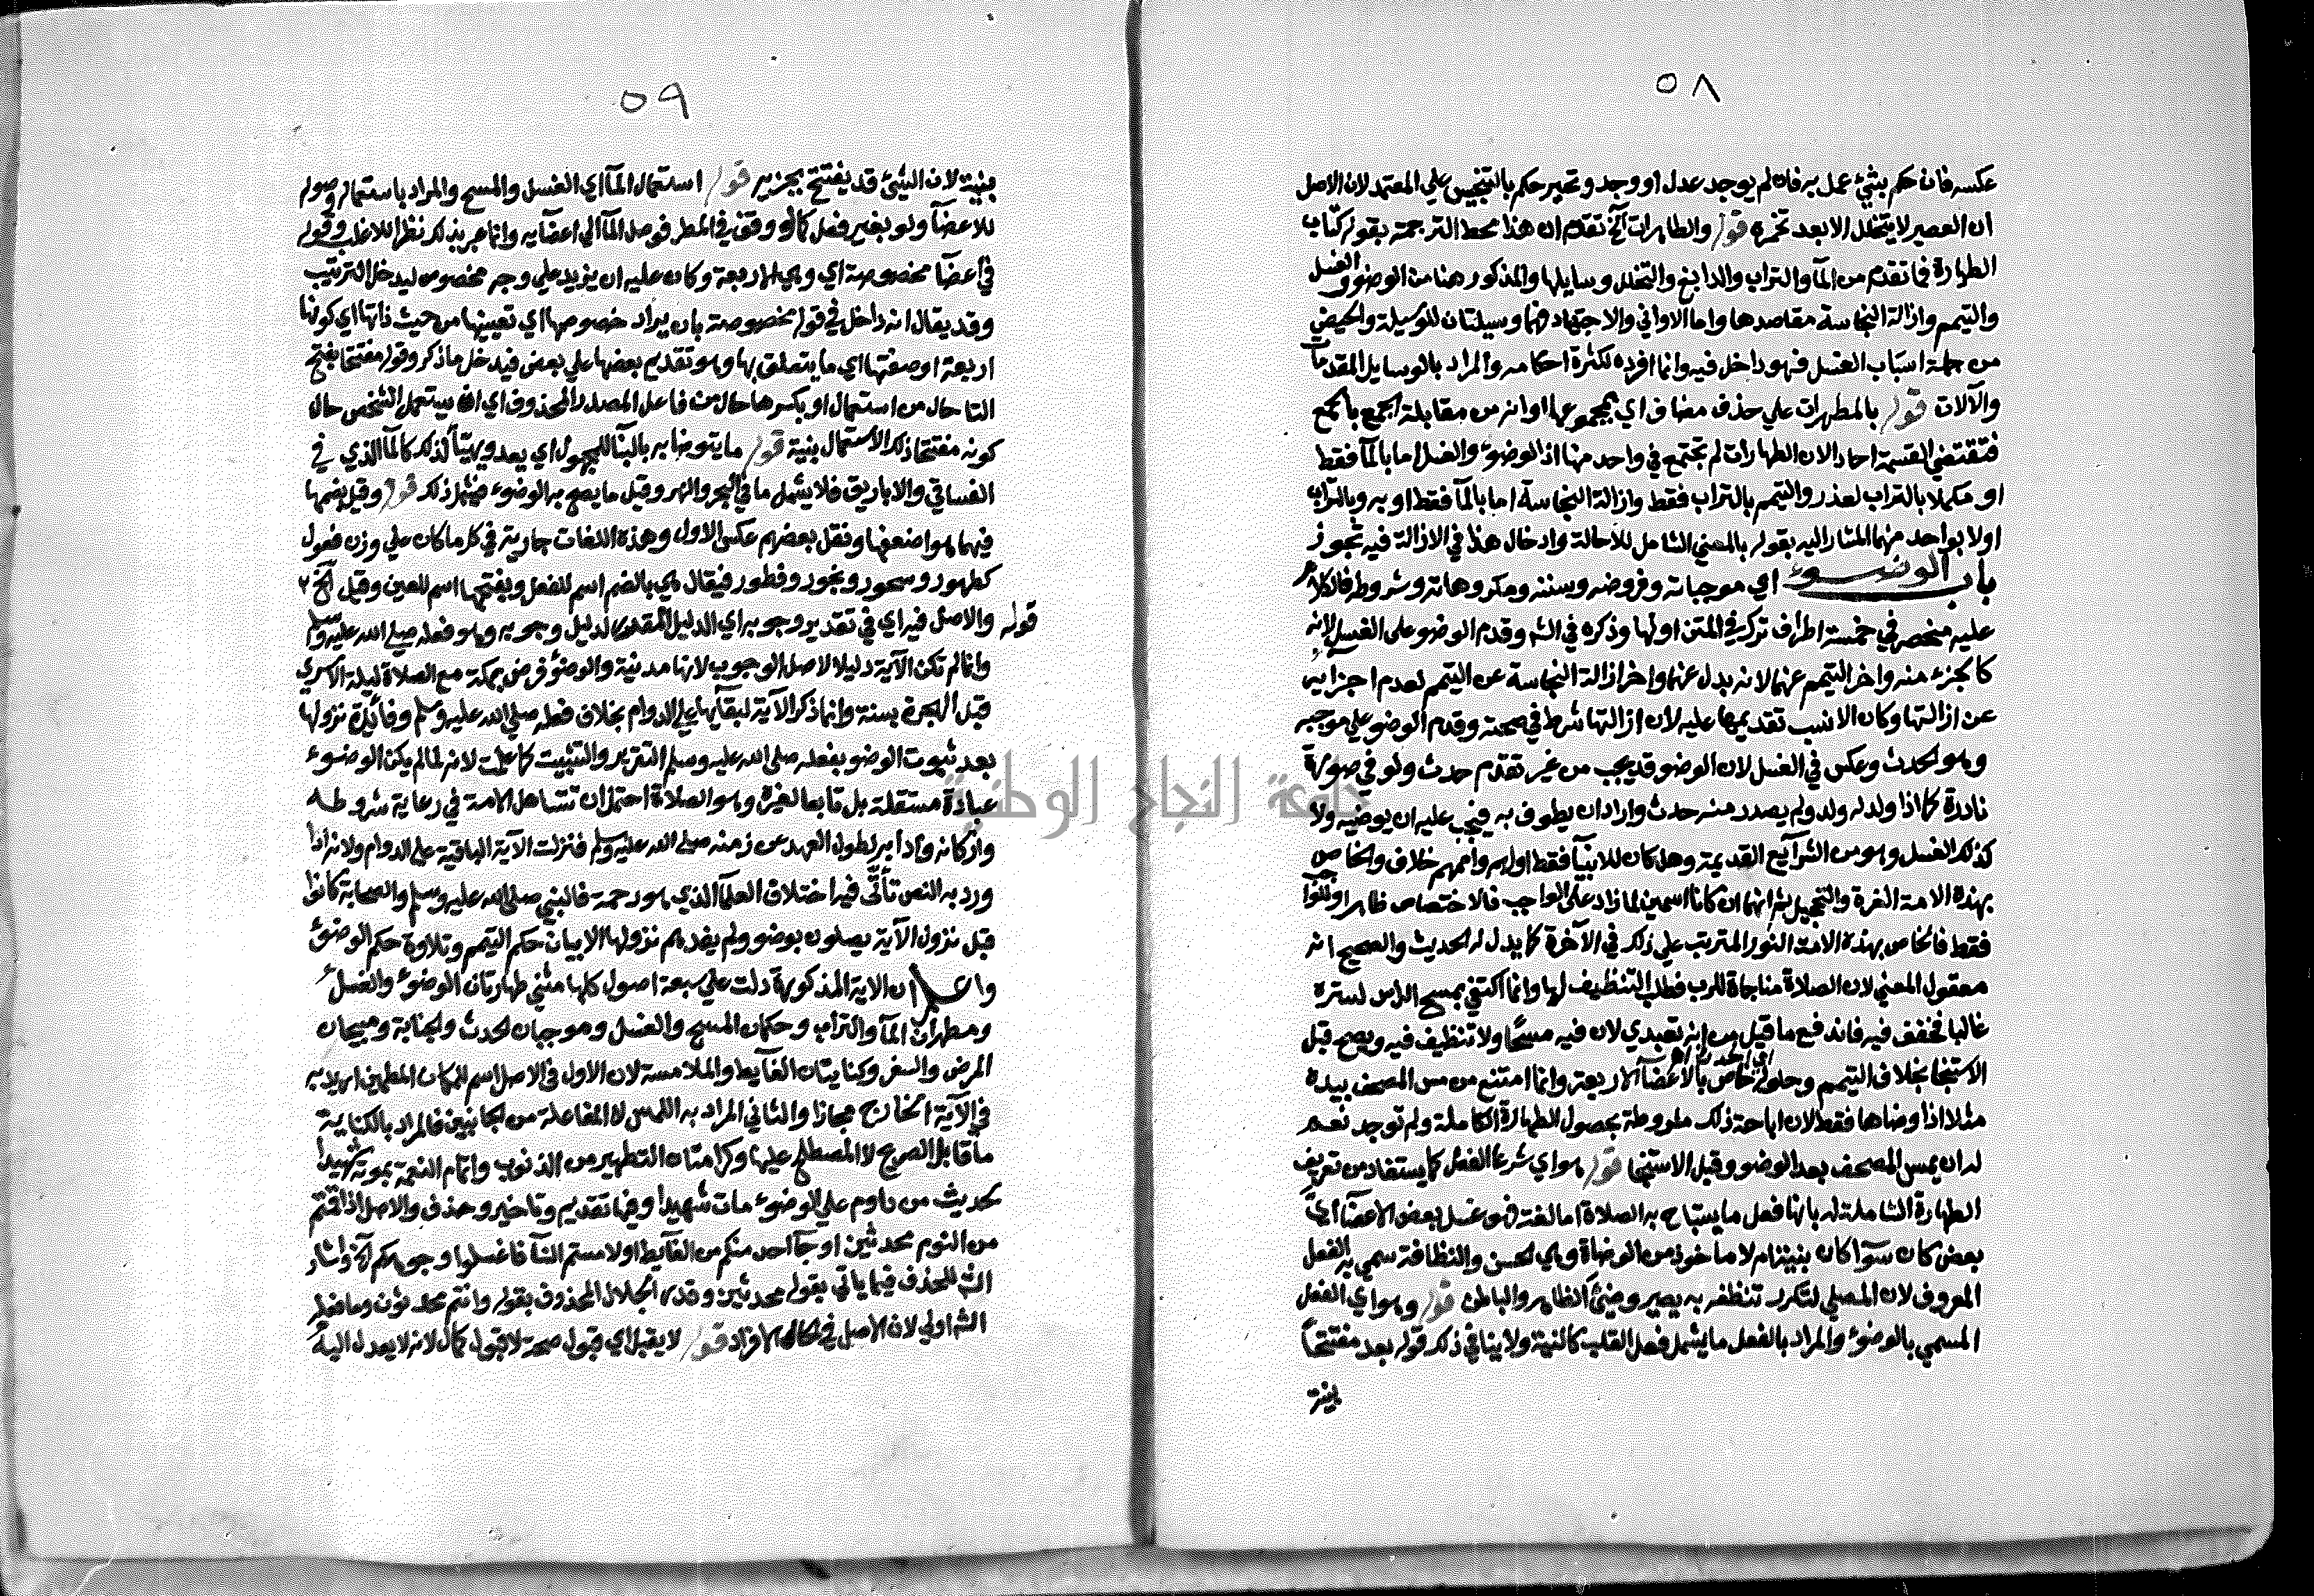 ٥٨
عكسه فان حكم بشئ عمل به فان لم يوجد عدل او وجد وتحير حكم بالتنجيس علي المعتمد لان الاصل
ان العصير لا يتخلل الا بعد تخمره قوله والطاهرات الخ تقدم ان هذا محط الترجمة بقوله كتاب
الطهارة فما تقدم من المآ والتراب والدابغ والتخلل وسايلها والمذكور هنا من الوضو والغسل
والتيمم وازالة النجاسة مقاصدها واما الاواني والاجتهاد فهما وسيلتان للوسيلة والحيض
من جملة اسباب الغسل فهو داخل فيه وانما افرده لكثرة احكامه والمراد بالوسايل المقدمآ
والآلات قوله بالمطهرات علي حذف مضاف اي بمجموعها او انه من مقابلة الجمع بالجمع
فتقتضي القسمة احادا لان الطهارات لم تجتمع في واحد منها اذ الوضوء والغسل اما بالمآ فقط
او مكملا بالتراب لعذر والتيمم بالتراب فقط وازالة النجاسة اما بالمآ فقط او به وبالتراب
اولا بواحد منهما المشار اليه بقوله بالمعني الشامل للاحالة وادخال هذا في الازالة فيه تجوز
باب الوضوء اي موجباته وفروضه وسننه ومكروهاته وشروطه فالكلام
عليه منحصر في خمسة اطراف ترك في المتن اولها وذكره في الشم وقدم الوضو على الغسل لانه
كالجزء منه واخر التيمم عنهما لانه بدل عنهما واخر ازالة النجاسة عن التيمم لعدم اجزايه
عن ازالتها وكان الانسب تقديمها عليه لان ازالتها شرط في صحته وقدم الوضو علي موجبه
وهو الحدث وعكس في الغسل لان الوضو قد يجب من غير تقدم حدث ولو في صورة
نادرة كما اذا ولد له ولد ولم يصدر منه حدث واراد ان يطوف به فيجب عليه ان يوضيه ولا
كذلك الغسل وهو من الشرآيع القديمة وهل كان للانبيآ فقط او لهم واممهم خلاف والخاص
بهذه الامة الغرة والتحجيل ثم انهما ان كانا اسمين لما زاد على الواجب فالاختصاص ظاهر او للواجب
فقط فالخاص بهذه الامة النور المترتب علي ذلك في الآخرة كما يدل له الحديث والصحيح انه
معقول المعني لان الصلاة مناجاة للرب فطلب التنظيف لها وانما اكتفي بمسح الراس لستره
غالبا فخفف فيه فاندفع ما قيل من انه تعبدي لان فيه مسحا ولا تنظيف فيه ويصح قبل
الاستنجا بخلاف التيمم وحلوله اي الحدث الاصغر خاص بالاعضآ الاربعة وانما امتنع من مس المصحف بيده
مثلا اذا وضاها فقط لان اباحة ذلك مشروطة بحصول الطهارة الكاملة ولم توجد نعم
له ان يمس المصحف بعد الوضو وقبل الاستنجا قوله هو اي شرعا الفعل كما يستفاد من تعريف
الطهارة الشاملة له بانها فعل ما يستباح به الصلاة اما لغة فهو غسل بعض الاعضآ ايّ
بعض كان سوآ كان بنية ام لا ماخوذ من الوضاة وهي الحسن والنظافة سمي به الفعل
المعروف لان المصلي لتكرر تنظفه به يصير وضئ الظاهر والباطن قوله وهو اي الفعل
المسمي بالوضوء والمراد بالفعل ما يشمل فعل القلب كالنية ولا ينافي ذلك قوله بعد مفتتحاً
بنية
٥٩
بنية لان الشئ قد يفتتح بجزيه قوله استعمال المآ اي الغسل والمسح والمراد باستعماله وصوله
للاعضآ ولو بغير فعل كما لو وقف في المطر فوصل المآ الي اعضآيه وانما عبر بذلك نظرا للاغلب وقوله
في اعضآ مخصوصة اي وهي الاربعة وكان عليه ان يزيد علي وجه مخصوص ليدخل الترتيب
وقد يقال انه داخل في قوله مخصوصة بان يراد خصوصها اي تعيينها من حيث ذاتها اي كونها
اربعة او صفتها اي ما يتعلق بها وهو تقديم بعضها علي بعض فيدخل ما ذكر وقوله مفتتحا بفتح
التا حال من استعمال او بكسرها حال من فاعل المصدر المحذوف اي ان يستعمل الشخص حال
كونه مفتتحا ذلك الاستعمال بنية قوله ما يتوضا به بالبنآ للمجهول اي يعد ويهيأ لذلك كالمآ الذي في
الفساقي والاباريق فلا يشمل ما في البحر والنهر وقيل ما يصح به الوضوء فيشمل ذلك قوله وقيل بضمها
فيهما هو اضعفها ونقل بعضهم عكس الاول وهذه اللغات جارية في كل ما كان علي وزن فعول
كطهور وسحور وبخور وفطور فيقال هي بالضم اسم للفعل وبفتحها اسم للعين وقيل الخ
قوله والاصل فيه اي في تقدير وجوبه اي الدليل المقدر لدليل وجوبه وهو فعله صلي الله عليه وسلم
وانما لم تكن الآية دليلا لاصل الوجوب لانها مدنية والوضؤ فرض بمكة مع الصلاة ليلة الاسري
قبل الهجرة بسنة وانما ذكر الآية لبقآيها علي الدوام بخلاف فعله صلي الله عليه وسلم وفائدة نزولها
بعد ثبوت الوضو بفعله صلى الله عليه وسلم التقرير والتثبيت كما علمت لانه لما لم يكن الوضوء
عبادة مستقلة بل تابعا لغيره وهو الصلاة احتمل ان تتساهل الامة في رعاية شروطه
واركانه وآدابه لطول العهد عن زمنه صلى الله عليه وسلم فنزلت الآية الباقية على الدوام ولانه اذا
ورد به النص تأتّى فيه اختلاف العلمآ الذي هو رحمة فالنبي صلى الله عليه وسلم والصحابة كانوا
قبل نزول الآية يصلون بوضو ولم يفدهم نزولها الا بيان حكم التيمم وتلاوة حكم الوضوء
واعلم ان الاية المذكورة دلت علي سبعة اصول كلها مثني طهارتان الوضوء والغسل
ومطهران المآ والتراب وحكمان المسح والغسل وموجبان الحدث والجنابة ومبيحان
المرض والسفر وكنايتان الغآيط والملامسة لان الاول في الاصل اسم للمكان المطمين اريد به
في الآية الخارج مجازا والثاني المراد به اللمس لا المفاعلة من الجانبين فالمراد بالكناية
ما قابل الصريح لا المصطلح عليها وكرامتان التطهير من الذنوب واتمام النعمة بموته شهيدا
لحديث من داوم علي الوضوء مات شهيدا وفيها تقديم وتاخير وحذف والاصل اذا قمتم
من النوم محدثين او جآ احد منكم من الغآيط او لامستم النسآ فاغسلوا وجوهكم الخ واشار
الشم للحذف فيما ياتي بقوله محدثين وقدر الجلال المحذوف بقوله وانتم محدثون وما فعله
الشم اولي لان الاصل في الحال الافراد قوله لا يقبل اي قبول صحة لا قبول كمال لانه لا يعدل اليه
جامعة النجاح الوطنية